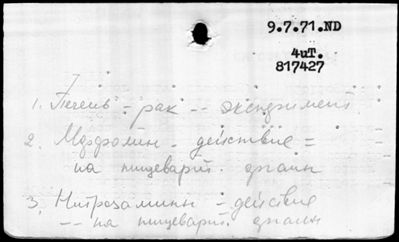 9.7.71.ND
4иТ.
817427
1. Печень - рак -- эксперимент
2. Морфолин - действие =
на пищеварит. органы
3. Нитрозамины - действие
-- на пищеварит. органы